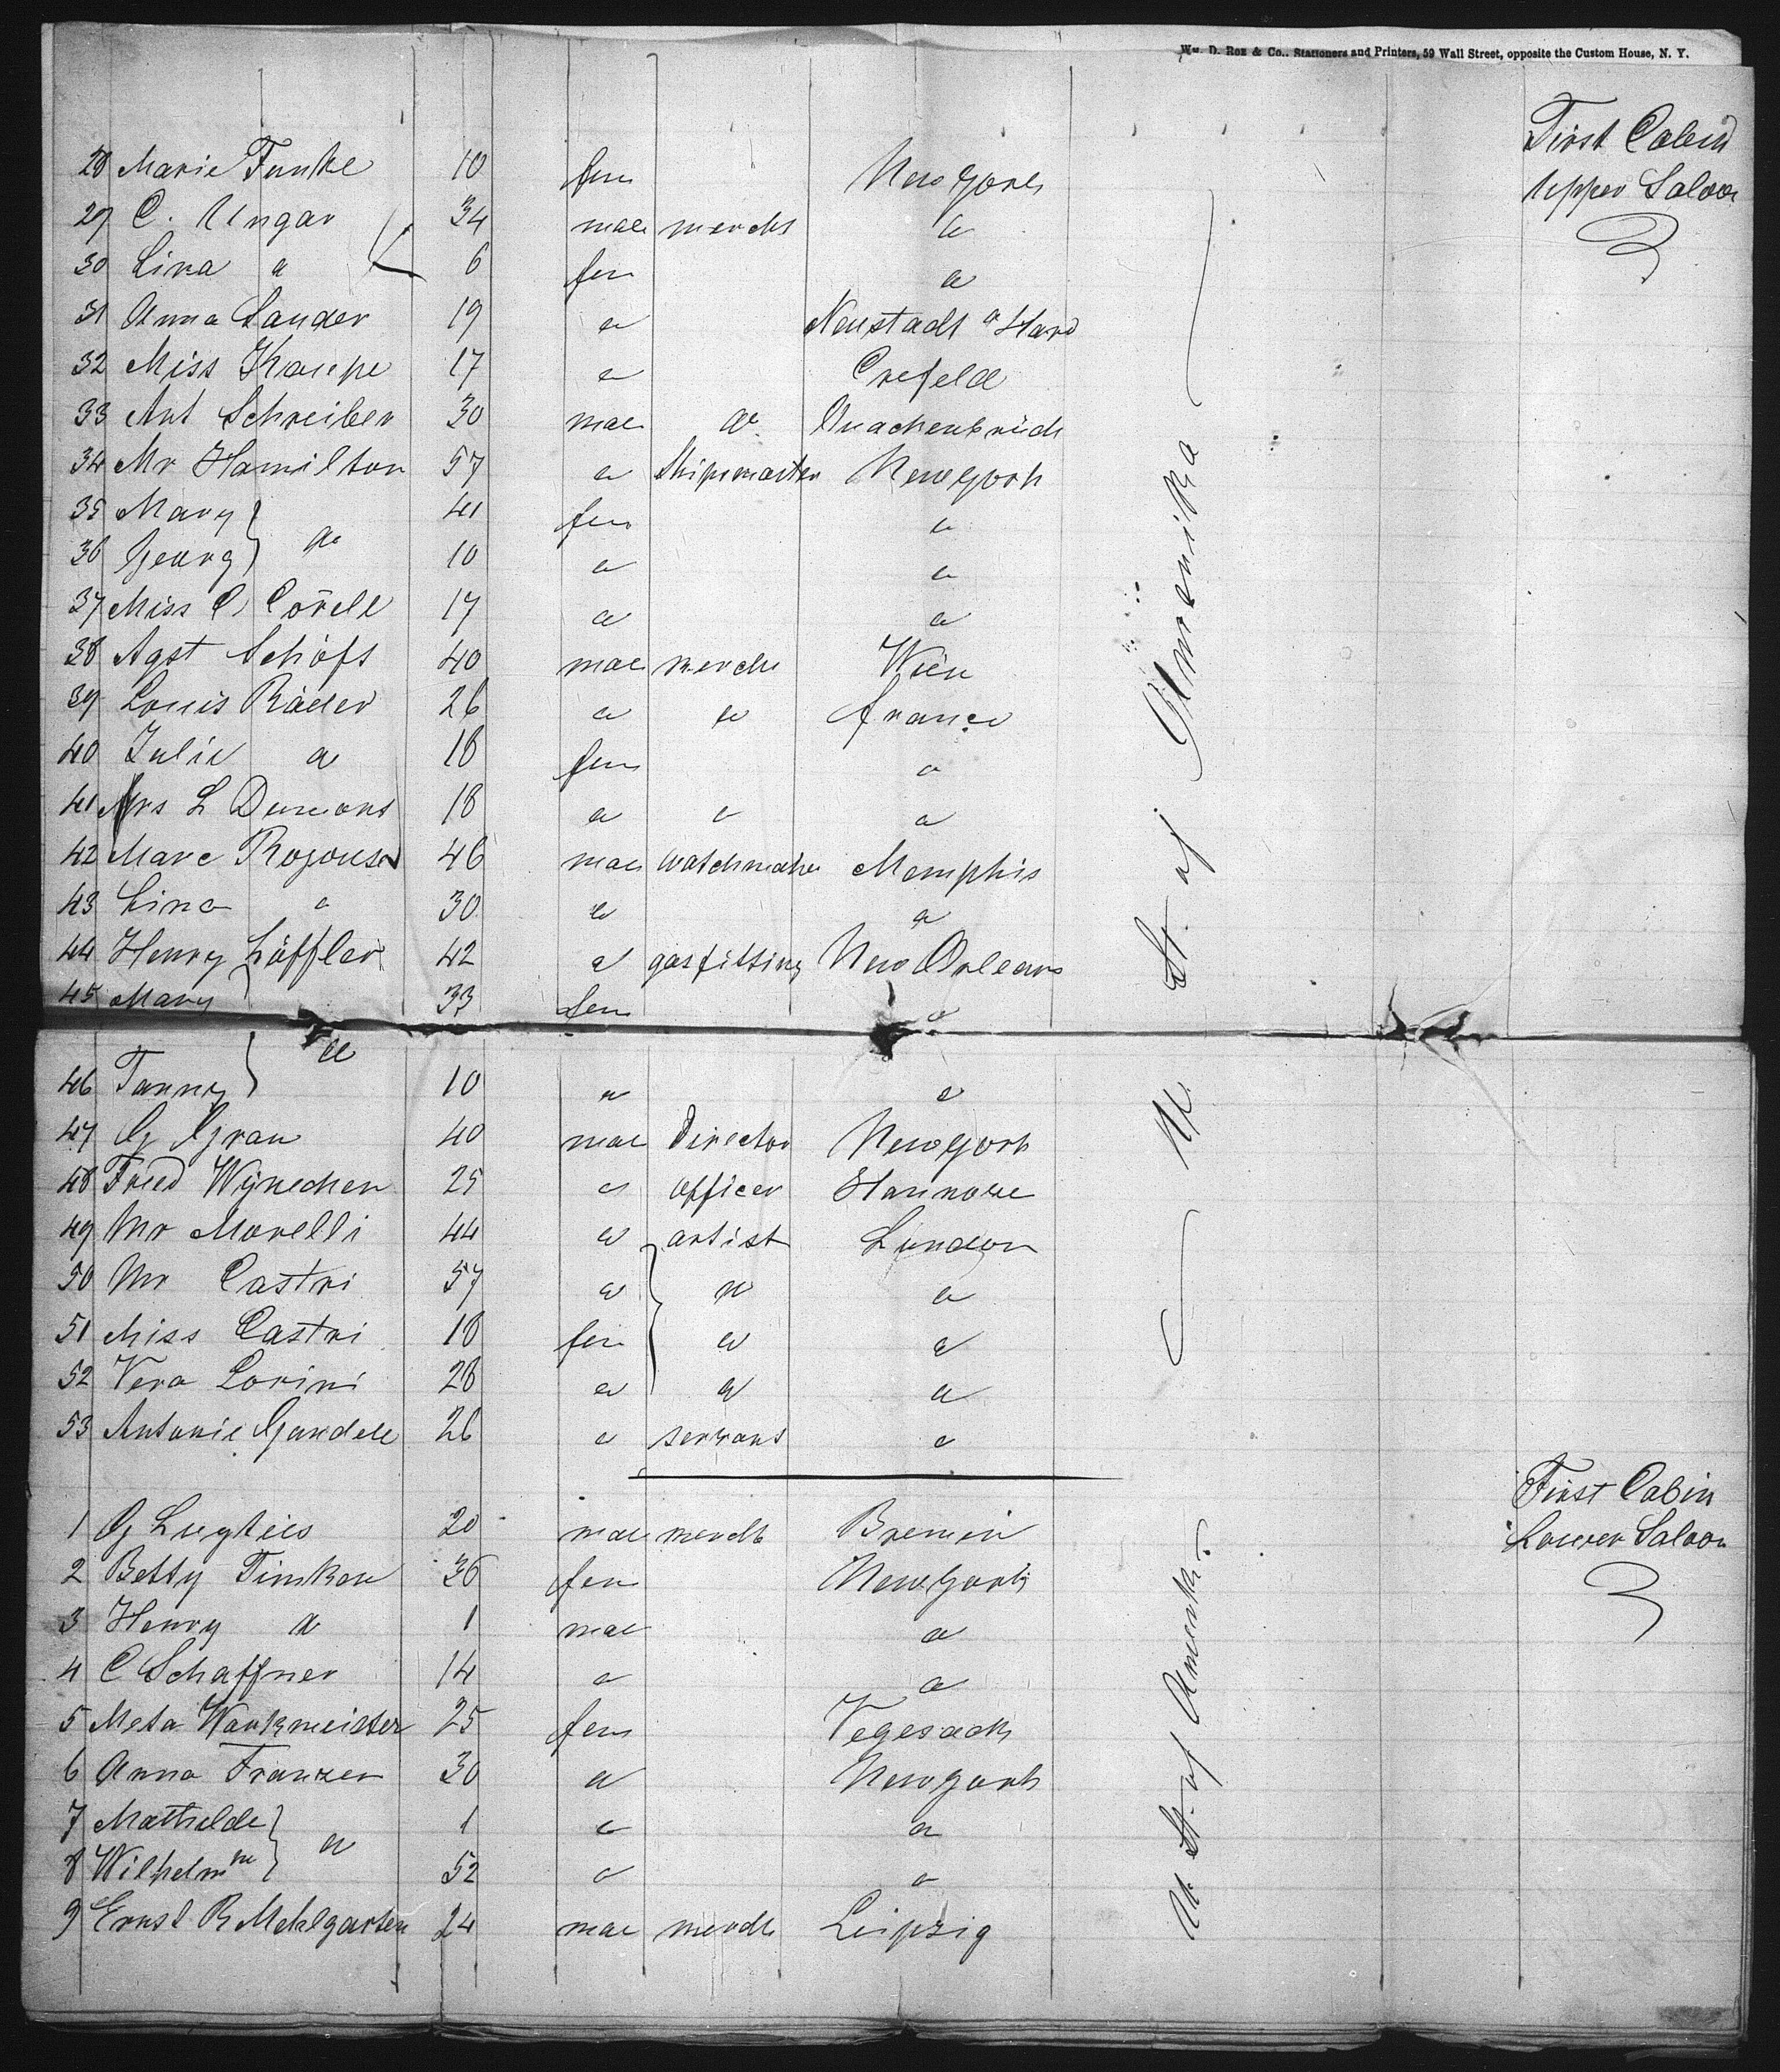 Wm. D. Roe & Co., Stationers and Printers, 59 Wall Street, opposite the Custom House, N. Y.
First Cabin
Upper Saloon
28 Marie Funke 10 fem New York
29 C. Ungar 34 mal mercht a
30 Lina a 6 fem a
31 Anna Sander 19 a Neustadt a Hard
32 Miss Kaupe 17 a Crefeld
33 Ant Schreiber 30 mal a Quackenbrück
34 Mr Hamilton 57 a Shipmaster New York
35 Mary 41 fem a
36 Georg a 10 a a
37 Miss C Corell 17 a a
38 Agst Schöfs 40 mal mercht Wien
39 Louis Räder 26 a a france
40 Julie a 18 fem a
41 Mrs L Dumons 18 a a a
42 Marc 46 mal watchmaker Memphis
43 Lina a 30 a a
44 Henry Löffler 42 a gasfitting New Orleans
45 Mary 33 fem a
46 Fanny a 10 a a
47 G Grau 40 mal Director New York
48 Fried Wynechen 25 a officer Hannover
49 Mr Morelli 44 a artist London
50 Mr Castri 57 a a a
51 Miss Castri 18 fem a a
52 Vera Lorini 28 a a a
53 Antonie 26 a servant a
U. St. of Amerika
First Cabin
Lower Saloon
1 G 20 mal mercht Bremen
2 Betty Timken 36 fem New York
3 Henry a 1 mal a
4 C Schaffner 14 a a
5 Meta Workmeister 25 fem Vegesack
6 Anna Franzen 30 a New York
7 Mathilde 1 a a
8 Wilhelmne a 52 a a
9 Ernst R Mehlgarten 24 mal mercht Leipzig
U. St. of Amerika